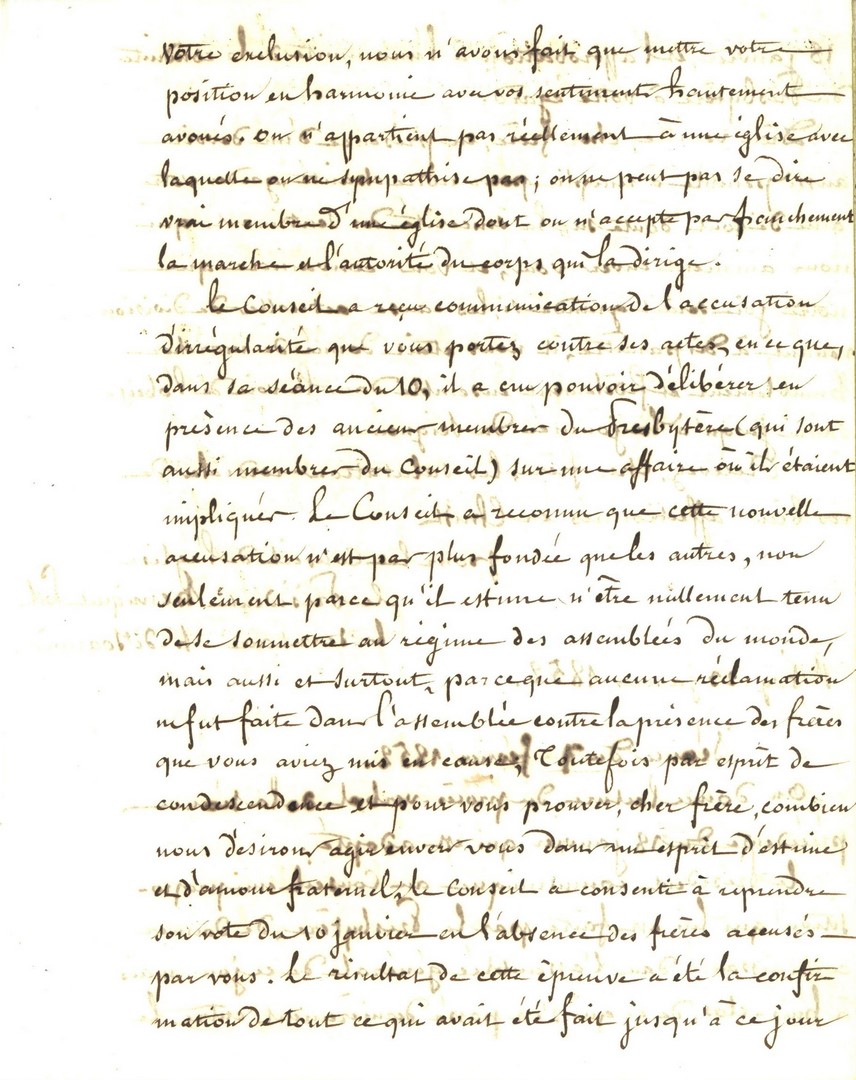 Votre exclusion, nous n'avons fait que mettre votre
position en harmonie avec vos sentiments hautement
avoués. On n'appartient pas réellement à une église avec
laquelle on ne sympathise pas; on ne peut pas se dire
vrai membre d'une église dont on n'accepte pas franchement
la marche et l'autorité du corps qui la dirige.
Le Conseil a reçu communication de l'accusation
d'irrégularité que vous portez contre ses actes, en ce que,
dans sa séance du 10, il a cru pouvoir délibérer en
présence des anciens membres du Presbytère (qui sont
aussi membres du Conseil) sur une affaire où ils étaient
impliqués. Le Conseil a reconnu que cette nouvelle
accusation n'est pas plus fondée que les autres, non
seulement parce qu'il estime n'être nullement tenu
de se soumettre au régime des assemblées du monde,
mais aussi et surtout, parce que aucune réclamation
ne fut faite dans l'assemblée contre la présence des frères
que vous aviez mis en cause. Toutefois par esprit de
condescendence et pour vous prouver, cher frère, combien
nous désirons agir envers vous dans un esprit d'estime
et d'amour fraternel, le Conseil a consenti à reprendre
son vote du 10 janvier en l'absence des frères accusés
par vous. Le résultat de cette épreuve a été la confir
mation de tout ce qui avait été fait jusqu'à ce jour